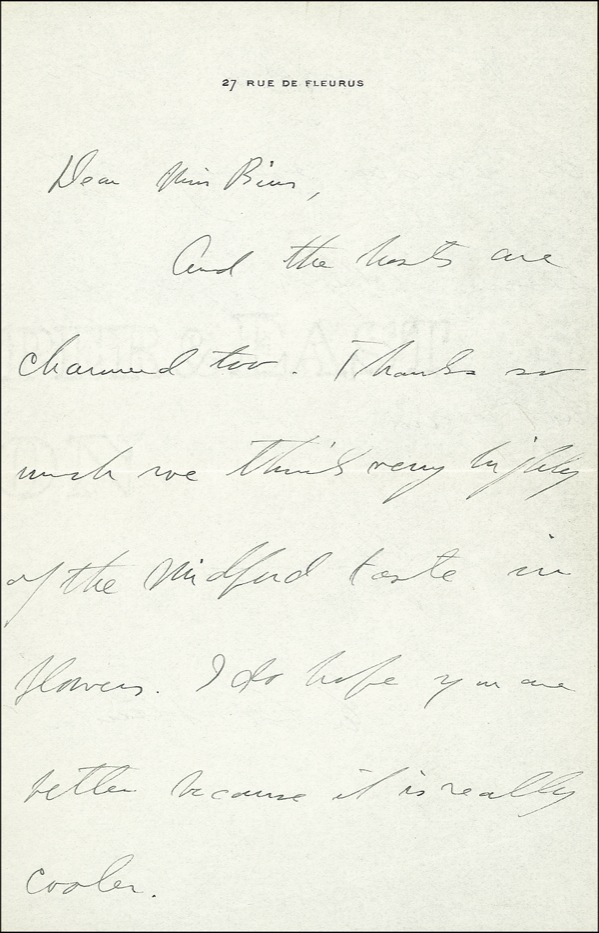 27 RUE DE FLEURUS
Dear Miss
And the hosts are
charmed too. Thanks so
much we think very highly
of the Midford taste in
flowers. I do hope you are
better because it is really
cooler.